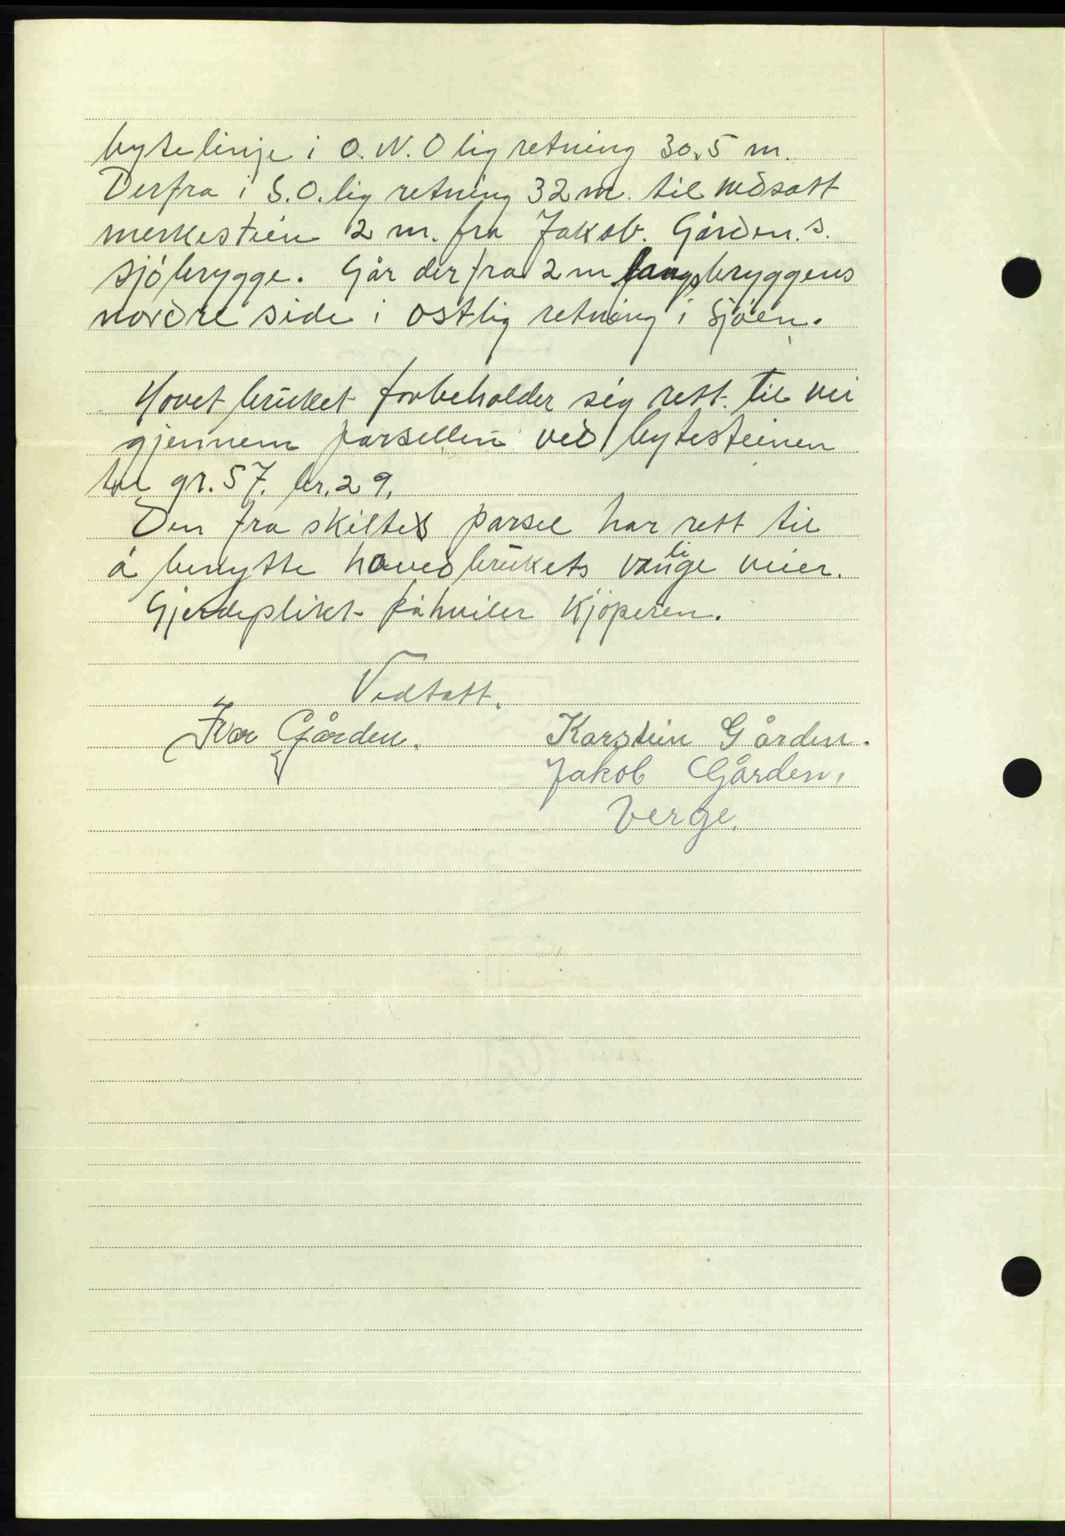 bytelinje i O.N.Olig retning 30,5 m.
Derfra i S.O.lig retning 32 m. til nedsatt
merkestein 2 m. fra Jakob. Gården.s.
sjöbrygge. Går derfra 2 m langsbryggens
nordre side i östlig retning i Sjöen.
Hovet bruket forbeholder sig rett til vei
gjennem parsellen ved bytesteinen
til gr. 57. br. 29.
Den fra skiltes parsel har rett til
å benytte hovedbrukets vanlige veier.
Gjerdeplikt påhviler Kjöperen.
Vedtatt.
Ivar Gården. Karstein Gården.
Jakob Gården,
Verge.